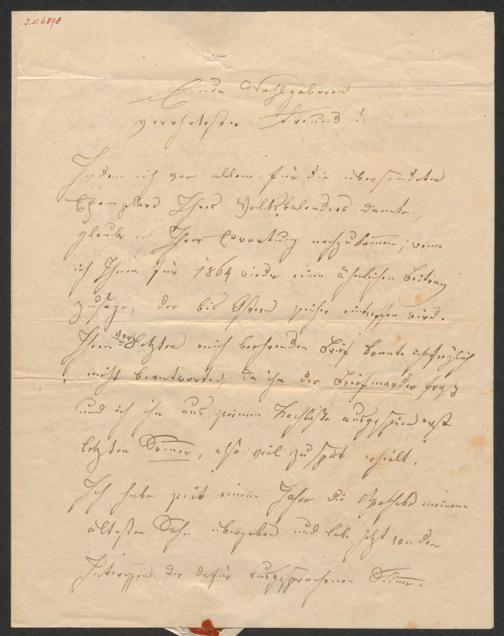 I.N. 6898
Euer Wohlgeboren
verehrtester Freund!
Indem ich vor allem für die übersendeten
Exemplare Ihres Volkskalenders danke,
glaube ich Ihrer Erwartung nachzukommen, wenn
ich Ihnen für 1864 wieder einen ähnlichen Beitrag
zusage, der bis Ostern sicher eintreffen wird.
Ihren letzten mich beehrenden Brief konnte ich
nicht beantworten, da ihn der Briefmarder
und ich ihn aus seinem Nachlasse erst
letzten Sommer, also viel zu spät erhielt.
Ich habe seit einem Jahre die Apotheke meinem
ältesten Sohn übergeben und lebe jetzt von den
Interessen der dafür ausgesprochenen Summe.